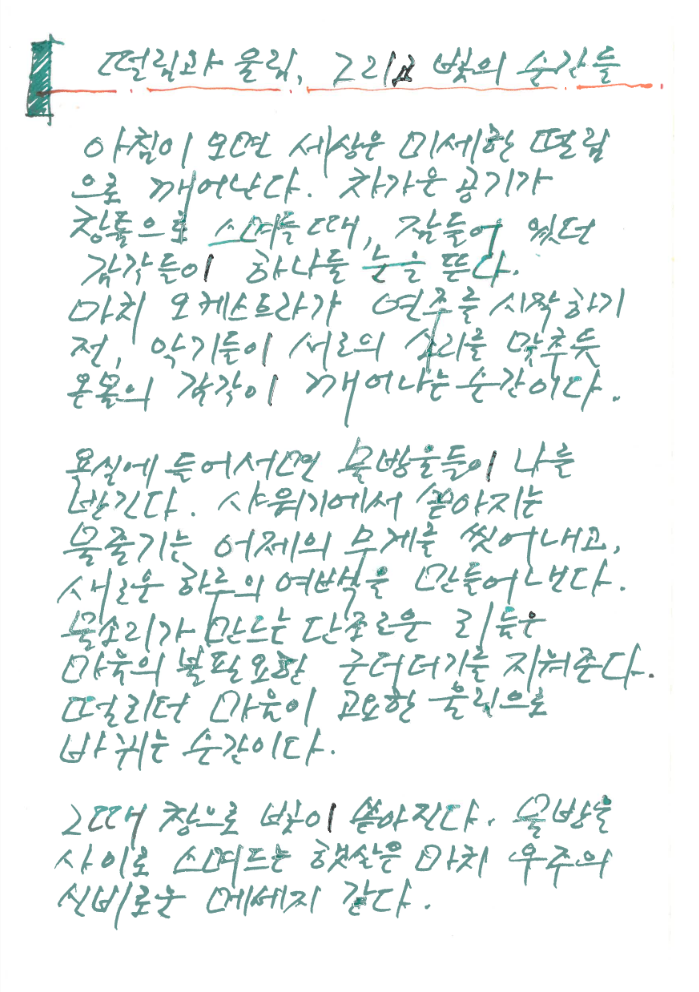 떨림과 울림, 그리고 빛의 순간들
아침이 오면 세상은 미세한 떨림
으로 깨어난다. 차가운 공기가
창틀으로 스며들 때, 잠들어 있던
감각들이 하나둘 눈을 뜬다.
마치 오케스트라가 연주를 시작하기
전, 악기들이 서로의 소리를 맞추듯
온몸의 감각이 깨어나는 순간이다.
욕실에 들어서면 물방울들이 나를
반긴다. 샤워기에서 쏟아지는
물줄기는 어제의 무게를 씻어내고,
새로운 하루의 여백을 만들어낸다.
물소리가 만드는 단조로운 리듬은
마음의 불필요한 군더더기를 지워준다.
떨리던 마음이 고요한 울림으로
바뀌는 순간이다.
그때 창으로 빛이 쏟아진다. 물방울
사이로 스며드는 햇살은 마치 우주의
신비로운 메세지 같다.